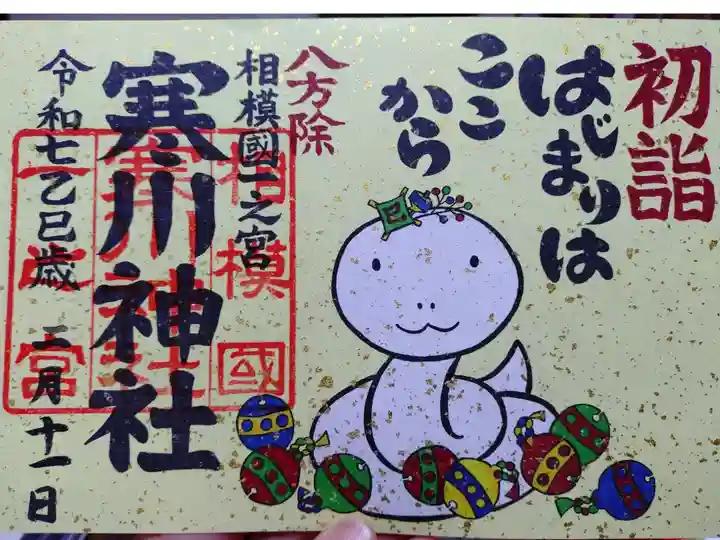 初詣
はじまりは
ここ
から
八方除
相模國一之宮
寒川神社
令和七乙巳歳 二月十一日
相模國
寒川神社
一之宮
巳